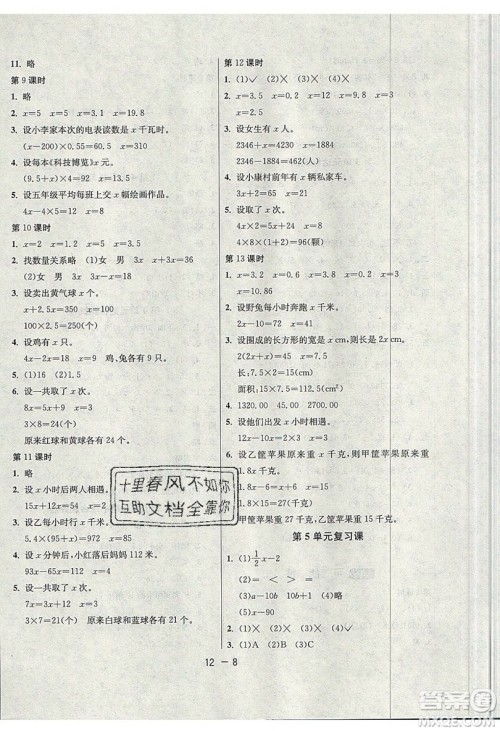 11. 略
第 9 课时
1. 略
2. x=5 x=5 x=3.1 x=19.8
3. 设小李家本次的电表读数是 x 千瓦时。
(x-200)×0.55=60.5 x=310
4. 设每本《科技博览》x 元。
(9.5+x)×4=90 x=13
5. 设五年级平均每班上交 x 幅绘画作品。
4x-x=54 x=18
第 10 课时
1. x=2 x=1.2 x=1
2. 找数量关系略
(1)女 男 3x x+3x (2)女 男 3x 3x-x
3. 设卖出黄气球 x 个。
2.5x-x=150 x=100
100×2.5=250(个)
4. 设鸡有 x 只。
4x-2x=18 x=9 鸡,兔各有 9 只。
5. (1)16 (2)1.5
6. 设一共取了 x 次。
8x-3x=15 x=3
3×8=24(个)
原来红球和黄球各有 24 个。
第 11 课时
1. 略
2. 设 x 小时后两人相遇。
15x+12x=54 x=2
3. 设乙每小时行 x 千米。
5.4×(95+x)=945 x=80
4. 设 x 分钟后,小红落后妈妈 112 米。
93x-65x=112 x=4
5. 设一共取了 x 次。
7x=3x+12 x=3
3×7=21(个) 原来白球和蓝球各有 21 个。
第 12 课时
1. (1)✓ (2)✕ (3)✕ (4)✕
2. x=3.5 x=10.2 x=12 x=10.8
x=0.7 x=9
3. 设女生有 x 人。
2346+x=4230 x=1884
2346-1884=462(人)
4. 设小康村前年有 x 辆私家车。
3x+2=65 x=21
5. 设取了 x 次。
4x×2=5x+36 x=12
4×8×(12÷4)=96(颗)
第 13 课时
1. x=3 x=0.8 x=2.8 x=0.72
x=10.86
2. 设野兔每小时奔跑 x 千米。
2x-10=110 x=60
3. 设围成的长方形的宽是 x cm,则长是 2x cm。
2(x+2x)=45 x=7.5
长:7.5×2=15(cm)
面积:15×7.5=112.5(cm²)
4. 1320.00 28.00
5. 设他们出发后 x 小时相遇。
4x+6x=20 x=2
6. 设乙筐苹果原来重 x 千克,则甲筐苹果原来重
1.8x 千克。
1.8x-6=x+6 x=15
甲筐苹果重 27 千克,乙筐苹果重 15 千克。
第 5 单元复习课
1. (1)½x-2
(2)= < > =
(3)a-10b (4)略
(5)x-90
2. (1)✕ (2)✕ (3)✕ (4)✓
3. (1)A (2)B (3)C
十里春风不如你
互助文档全靠你
12 - 8
答案圈
MXQE.COM